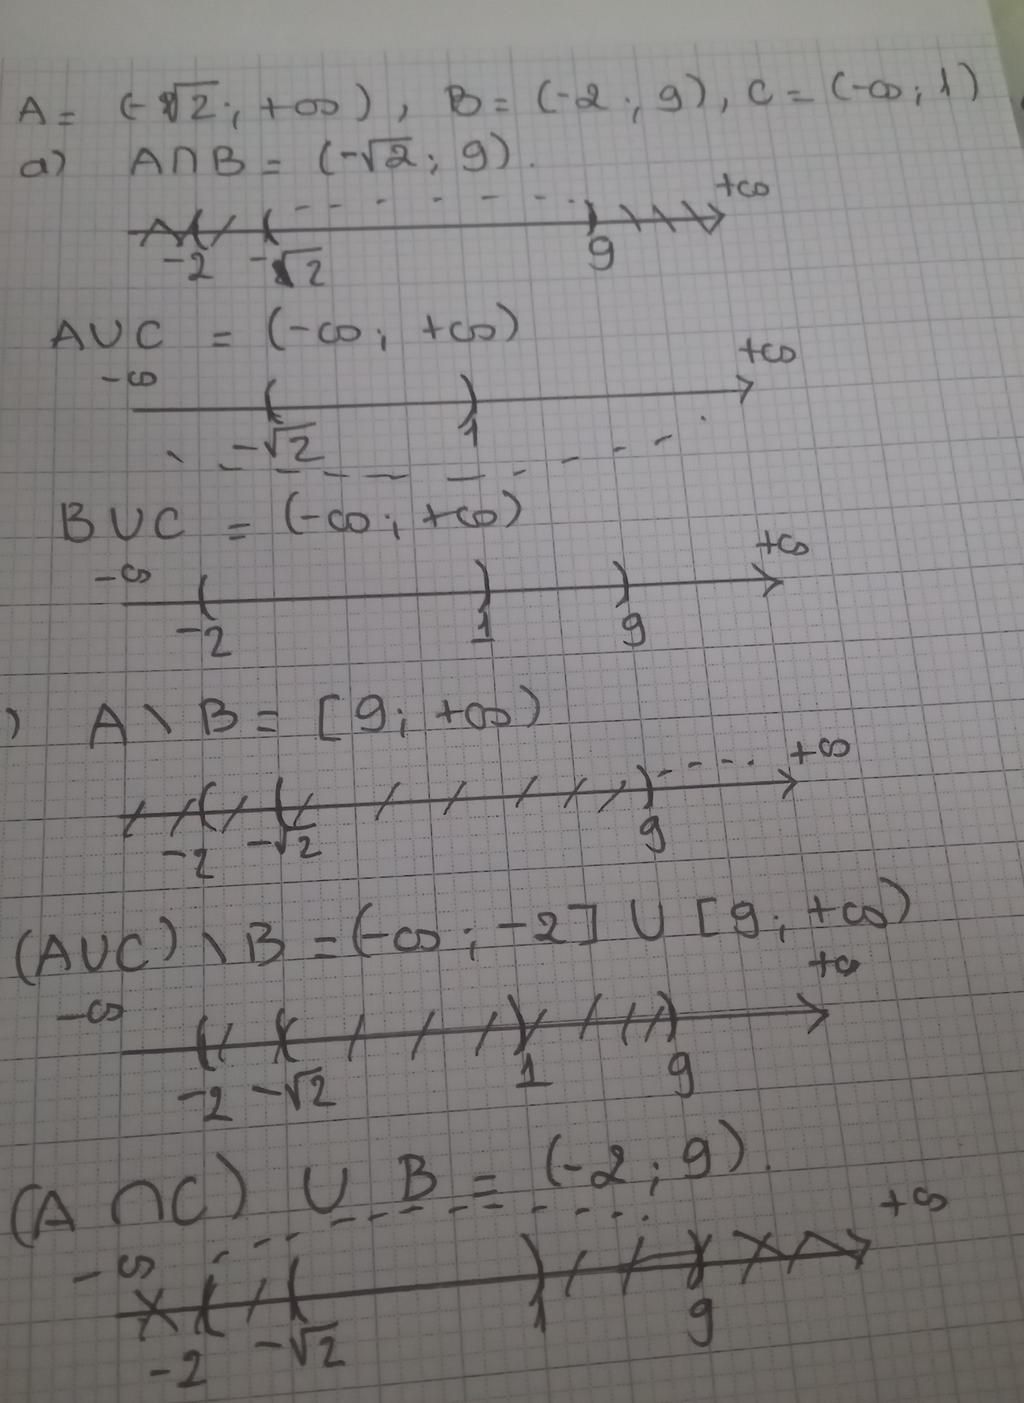 A = (-√2; +∞), B = (-2; 9), C = (-∞; 1)
a) A∩B = (-√2; 9).
+∞
-2 -√2 9
A∪C = (-∞; +∞)
-∞ +∞
-√2 1
B∪C = (-∞; +∞)
-∞ +∞
-2 1 9
) A \ B = [9; +∞)
+∞
-2 -√2 9
(A∪C) \ B = (-∞; -2] ∪ [9; +∞)
-∞ +∞
-2 -√2 1 9
(A∩C) ∪ B = (-2; 9).
-∞ +∞
-2 -√2 1 9